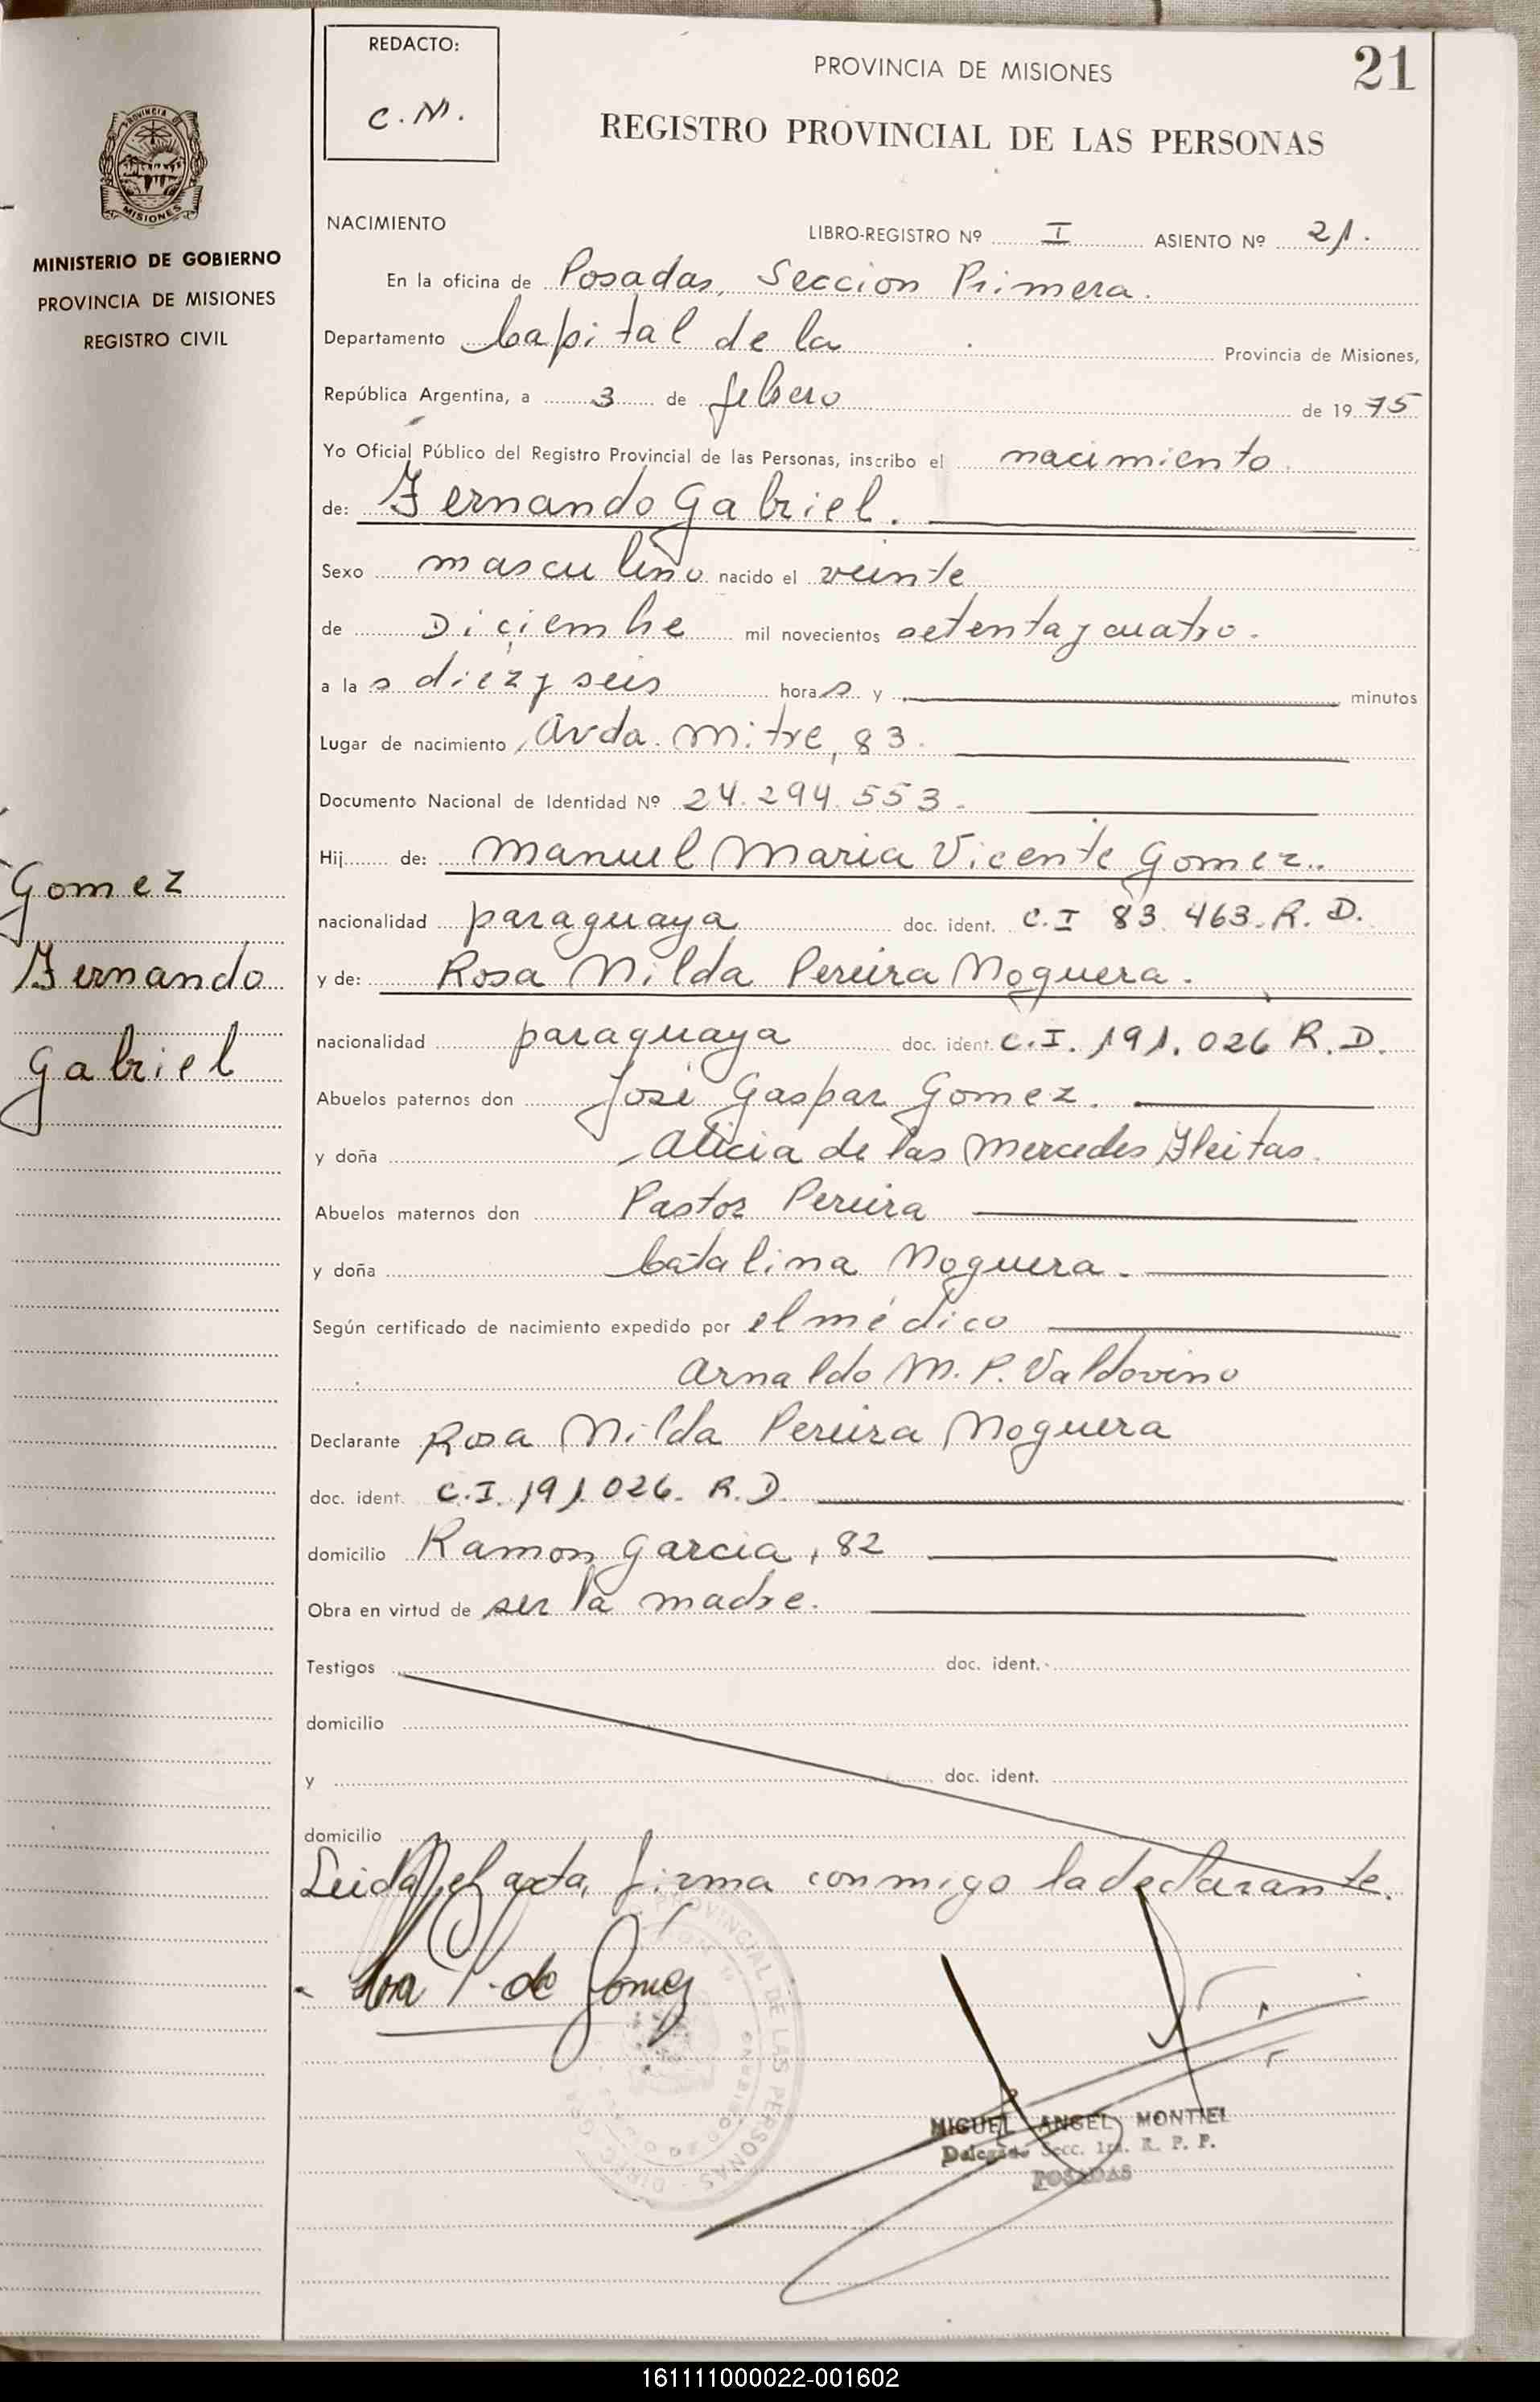 REDACTO:
C. M.
PROVINCIA DE MISIONES
21
REGISTRO PROVINCIAL DE LAS PERSONAS
PROVINCIA DE
MISIONES
MINISTERIO DE GOBIERNO
PROVINCIA DE MISIONES
REGISTRO CIVIL
NACIMIENTO
LIBRO-REGISTRO Nº I ASIENTO Nº 21.
En la oficina de Posadas, Seccion Primera.
Departamento Capital de la Provincia de Misiones,
República Argentina, a 3 de febrero de 1975
Yo Oficial Público del Registro Provincial de las Personas, inscribo el nacimiento.
de: Fernando Gabriel.
Sexo masculino nacido el veinte
de Diciembre mil novecientos setenta y cuatro.
a las diez y seis horas y minutos
Lugar de nacimiento, Avda. Mitre, 83.
Documento Nacional de Identidad Nº 24.294.553.
Hij de: Manuel Maria Vicente Gomez.
nacionalidad paraguaya doc. ident. C.I 83.463. R. D.
y de: Rosa Nilda Pereira Noguera.
nacionalidad paraguaya doc. ident. C.I. 191.026 R.D.
Abuelos paternos don José Gaspar Gomez.
y doña Alicia de las Mercedes Fleitas.
Abuelos maternos don Pastor Pereira
y doña Catalina Noguera.
Según certificado de nacimiento expedido por el médico
Arnaldo M. P. Valdovino
Declarante Rosa Nilda Pereira Noguera
doc. ident. C.I. 191.026. R.D.
domicilio Ramon Garcia, 82
Obra en virtud de ser la madre.
Testigos doc. ident.
domicilio
y doc. ident.
domicilio
Leida el acta, firma conmigo la declarante.
P. de Gomez
PROVINCIAL DE LAS PERSONAS
MIGUEL ANGEL MONTIEL
Delegado Secc. 1ra. R. P. P.
POSADAS
Gomez
Fernando
Gabriel
161111000022-001602